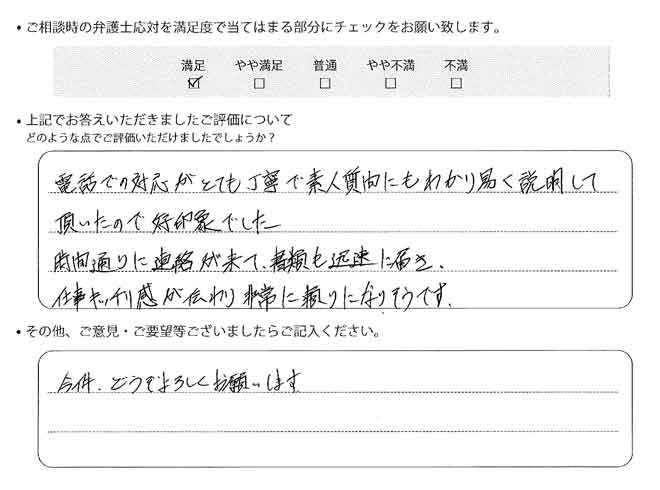 ・ご相談時の弁護士応対を満足度で当てはまる部分にチェックをお願い致します。
満足 やや満足 普通 やや不満 不満
☑ □ □ □ □
・上記でお答えいただきましたご評価について
どのような点でご評価いただけましたでしょうか?
電話での対応がとても丁寧で素人質問にもわかり易く説明して
頂いたので好印象でした
時間通りに連絡が来て、書類も迅速に届き、
仕事キッチリ感が伝わり非常に頼りになりそうです。
・その他、ご意見・ご要望等ございましたらご記入ください。
今件、どうぞよろしくお願いします